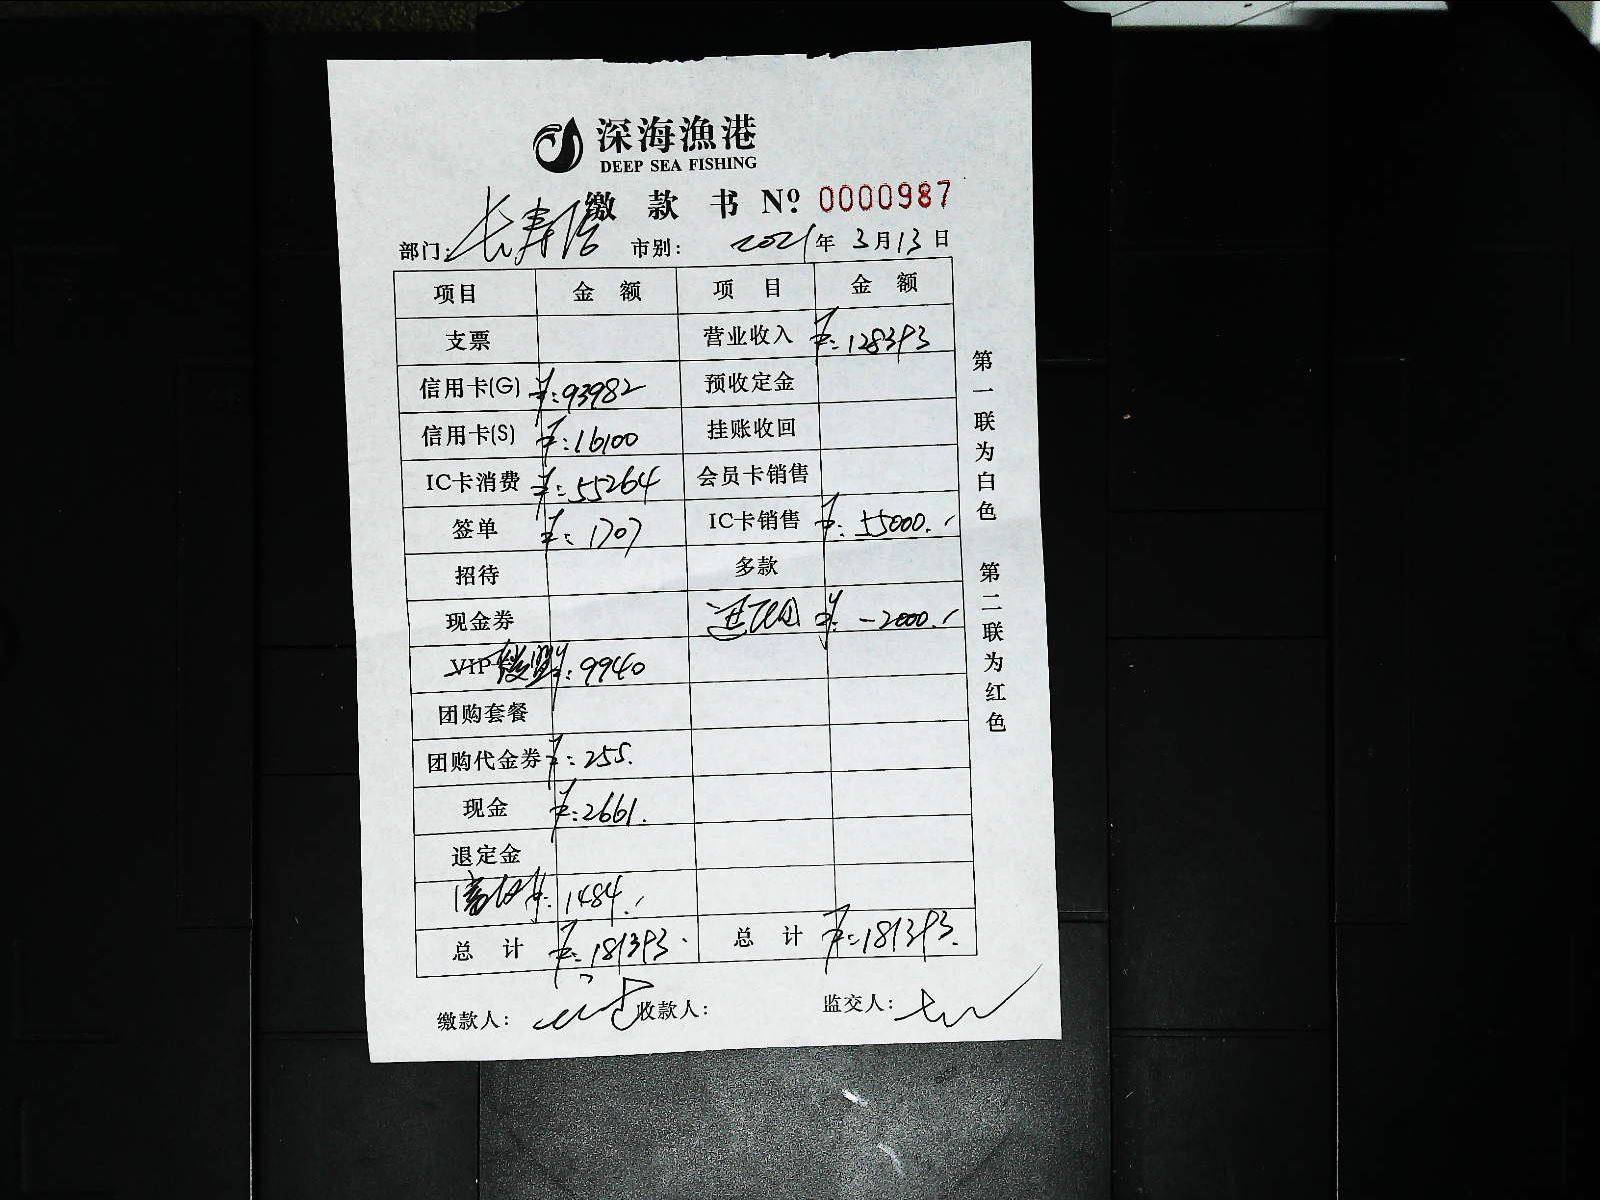 深海漁港
DEEP SEA FISHING
缴款书 Nº 0000987
部门: 长寿路 市别: 2021年3月13日
项目 金额 项目 金额
支票 营业收入 ¥:128393
信用卡(G) ¥:93982 预收定金
信用卡(S) ¥:16100 挂账收回
IC卡消费 ¥:55264 会员卡销售
签单 ¥:1707 IC卡销售 ¥:55000.
招待 多款
现金券 ¥:-2000.
VIP 微盟 ¥:9940
团购套餐
团购代金券 ¥:255.
现金 ¥:2661.
退定金
1484.
总计 ¥:181393. 总计 ¥:181393.
缴款人: 收款人: 监交人:
第一联为白色 第二联为红色